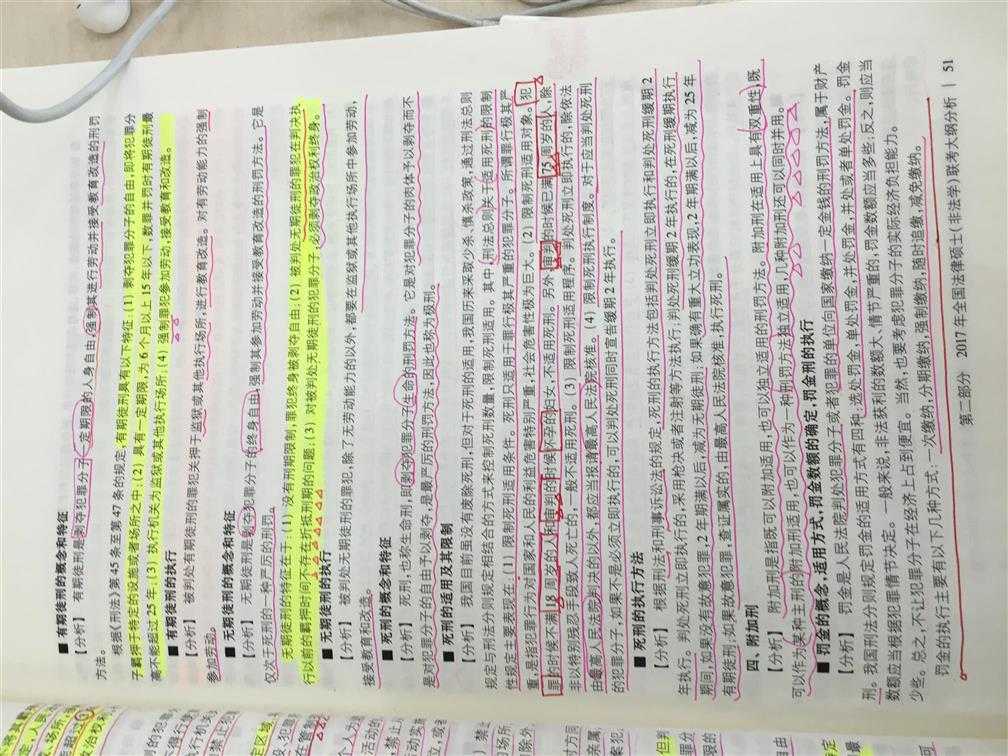 ■ 有期徒刑的概念和特征
【分析】 有期徒刑是剥夺犯罪分子一定期限的人身自由,强制其进行劳动并接受教育改造的刑罚
方法。
根据《刑法》第45条至第47条的规定,有期徒刑具有以下特征:(1)剥夺犯罪分子的自由,即将犯罪分
子羁押于特定的设施或者场所之中;(2)具有一定期限,为6个月以上15年以下,数罪并罚时有期徒刑最
高不能超过25年;(3)执行机关为监狱或其他执行场所;(4)强制罪犯参加劳动,接受教育和改造。
■ 有期徒刑的执行
【分析】 被判处有期徒刑的罪犯关押于监狱或其他执行场所,进行教育改造。对有劳动能力的强制
参加劳动。
■ 无期徒刑的概念和特征
【分析】 无期徒刑是剥夺犯罪分子的终身自由,强制其参加劳动并接受教育改造的刑罚方法。它是
仅次于死刑的一种严厉的刑罚。
无期徒刑的特征在于:(1)没有刑期限制,罪犯终身被剥夺自由;(2)被判处无期徒刑的罪犯在判决执
行以前的羁押时间不存在折抵刑期的问题;(3)对被判处无期徒刑的犯罪分子,必须剥夺政治权利终身。
■ 无期徒刑的执行
【分析】 被判处无期徒刑的罪犯,除了无劳动能力的以外,都要在监狱或其他执行场所中参加劳动,
接受教育和改造。
■ 死刑的概念和特征
【分析】 死刑,也称生命刑,即剥夺犯罪分子生命的刑罚方法。它是对犯罪分子的肉体予以剥夺而不
是对犯罪分子的自由予以剥夺,是最严厉的刑罚方法,因此也称为极刑。
■ 死刑的适用及其限制
【分析】 我国目前虽没有废除死刑,但对于死刑的适用,我国历来采取少杀、慎杀政策,通过刑法总则
规定与刑法分则规定相结合的方式来控制死刑数量,限制死刑适用。其中,刑法总则关于适用死刑的限制
性规定主要表现在:(1)限制死刑适用条件。死刑只适用于罪行极其严重的犯罪分子。所谓罪行极其严
重,是指犯罪行为对国家和人民的利益危害特别严重,社会危害性极为巨大。(2)限制死刑适用对象。犯
罪的时候不满18周岁的人和审判的时候怀孕的妇女,不适用死刑。另外,审判的时候已满75周岁的人,除
非以特别残忍手段致人死亡的,一般不适用死刑。(3)限制死刑适用程序。判处死刑立即执行的,除依法
由最高人民法院判决的以外,都应当报请最高人民法院核准。(4)限制死刑执行制度。对于应当判处死刑
的犯罪分子,如果不是必须立即执行的,可以判处死刑同时宣告缓期2年执行。
■ 死刑的执行方法
【分析】 根据刑法和刑事诉讼法的规定,死刑的执行方法包括判处死刑立即执行和判处死刑缓期2
年执行。判处死刑立即执行的,采用枪决或者注射等方法执行;判处死刑缓期2年执行的,在死刑缓期执行
期间,如果没有故意犯罪,2年期满以后,减为无期徒刑;如果确有重大立功表现,2年期满以后,减为25年
有期徒刑;如果故意犯罪,查证属实的,由最高人民法院核准,执行死刑。
四、附加刑
【分析】 附加刑是指既可以附加适用,也可以独立适用的刑罚方法。附加刑在适用上具有双重性,既
可以作为某种主刑的附加刑适用,也可以作为一种刑罚方法独立适用,几种附加刑还可以同时并用。
■ 罚金的概念,适用方式,罚金数额的确定,罚金刑的执行
【分析】 罚金是人民法院判处犯罪分子或者犯罪的单位向国家缴纳一定金钱的刑罚方法,属于财产
刑。我国刑法分则规定罚金的适用方式有四种:选处罚金,单处罚金,并处罚金,并处或者单处罚金。罚金
数额应当根据犯罪情节决定。一般来说,非法获利的数额大、情节严重的,罚金数额应当多些;反之,则应当
少些。总之,不让犯罪分子在经济上占到便宜。当然,也要考虑犯罪分子的实际经济负担能力。
罚金的执行主要有以下几种方式:一次缴纳,分期缴纳,强制缴纳,随时追缴,减免缴纳。
第二部分 2017年全国法律硕士(非法学)联考大纲分析 | 51